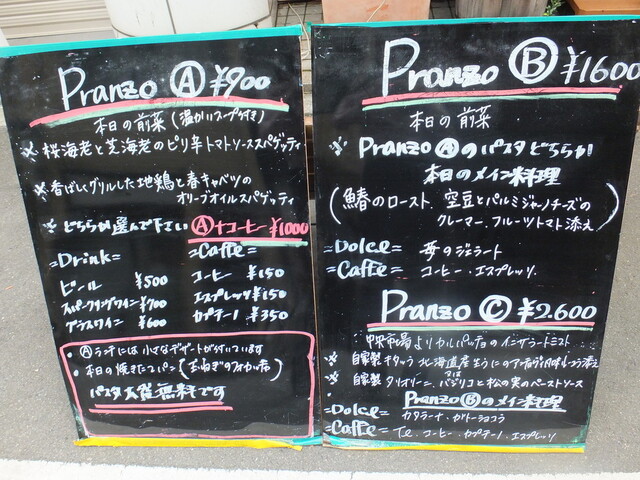 Pranzo Ⓐ ¥900
本日の前菜(温かいスープ付き)
※桜海老と芝海老のピリ辛トマトソーススパゲッティ
※香ばしくグリルした地鶏と春キャベツの
オリーブオイルスパゲッティ
※どちらか選んで下さい Ⓐ+コーヒー ¥1000
=Drink=
ビール ¥500
スパークリングワイン ¥700
グラスワイン ¥600
=Caffe=
コーヒー ¥150
エスプレッソ ¥150
カプチーノ ¥350
・Ⓐランチには小さなデザートが付いています
・本日の焼きたてパン(玉ねぎのフォカッチャ)
パスタ大盛無料です
Pranzo Ⓑ ¥1600
本日の前菜
※Pranzo Ⓐのパスタどちらか
本日のメイン料理
(鰆のロースト、空豆とパルミジャーノチーズの
クレーマ、フルーツトマト添え)
=Dolce= 苺のジェラート
=Caffe= コーヒー・エスプレッソ
Pranzo Ⓒ ¥2.600
中央市場よりカルパッチョのインサラートミスト
※自家製 北海道産生うにの 添え
※自家製タリオリーニ、バジリコと松の実のペーストソース
Pranzo Ⓑのメイン料理
=Dolce= カタラーナ・ガトーショコラ
=Caffe= Te、コーヒー・カプチーノ・エスプレッソ